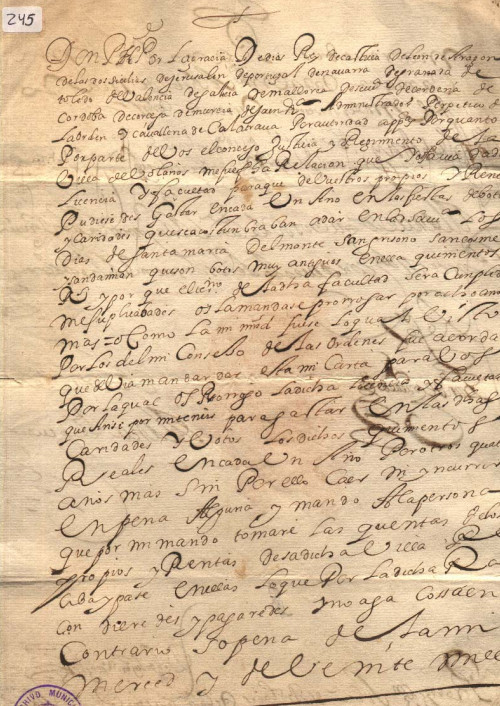 245
Don Phe Por La gracia De dios Rey de castilla de leon de Aragon
de las dos sicilias de jerusalen de portugal de navarra de granada de
toledo de Valencia de galicia de mallorca de sevilla de cerdeña de
Cordoba de corcega de murcia de jaen & Administrador Perpetuo de
La orden y cavalleria de Calatrava Por autoridad app.ca Por quanto
Por parte de Vos el concejo Justicia y Regimiento de la
Villa de bolaños me fue fha Relacion que os estava dada
Licencia y facultad para que de Vuestros propios y Rentas
Pudiesedes Gastar en cada Un Año en las fiestas de botos
y caridades que se acostumbraban a dar en essa Villa Los
dias de santa maria del monte san grisono san cosme
y san damian que son botos muy antiguos en essa quinientos
Rs y por que el termino de la dha facultad sera cumplido
me suplicabades os la mandase prorrogar por otro tiempo
mas o Como La mi mrd fuese Lo qual Visto
Por Los del mi Consejo de las Ordenes fue acordado
que devia mandar dar esta mi Carta para Vos
Por La qual os Prorrogo La dicha Licencia y facultad
que ansi por mi teneis para gastar En las dhas
Caridades y Votos Los dichos quinientos
Reales en cada Un Año Por otros quatro
años mas sin Por ello Caer ni yncurrir
en pena Alguna y mando A la persona
que por mi mando tomare las quentas de los
propios y Rentas de sa dicha Villa
Reciba y pase en ellas Lo que Por La dicha Ra
con dieredes y pagaredes y no aga cossa en
Contrario so pena de la mi
merced y de Veinte mill
ARCHIVO MUNICI